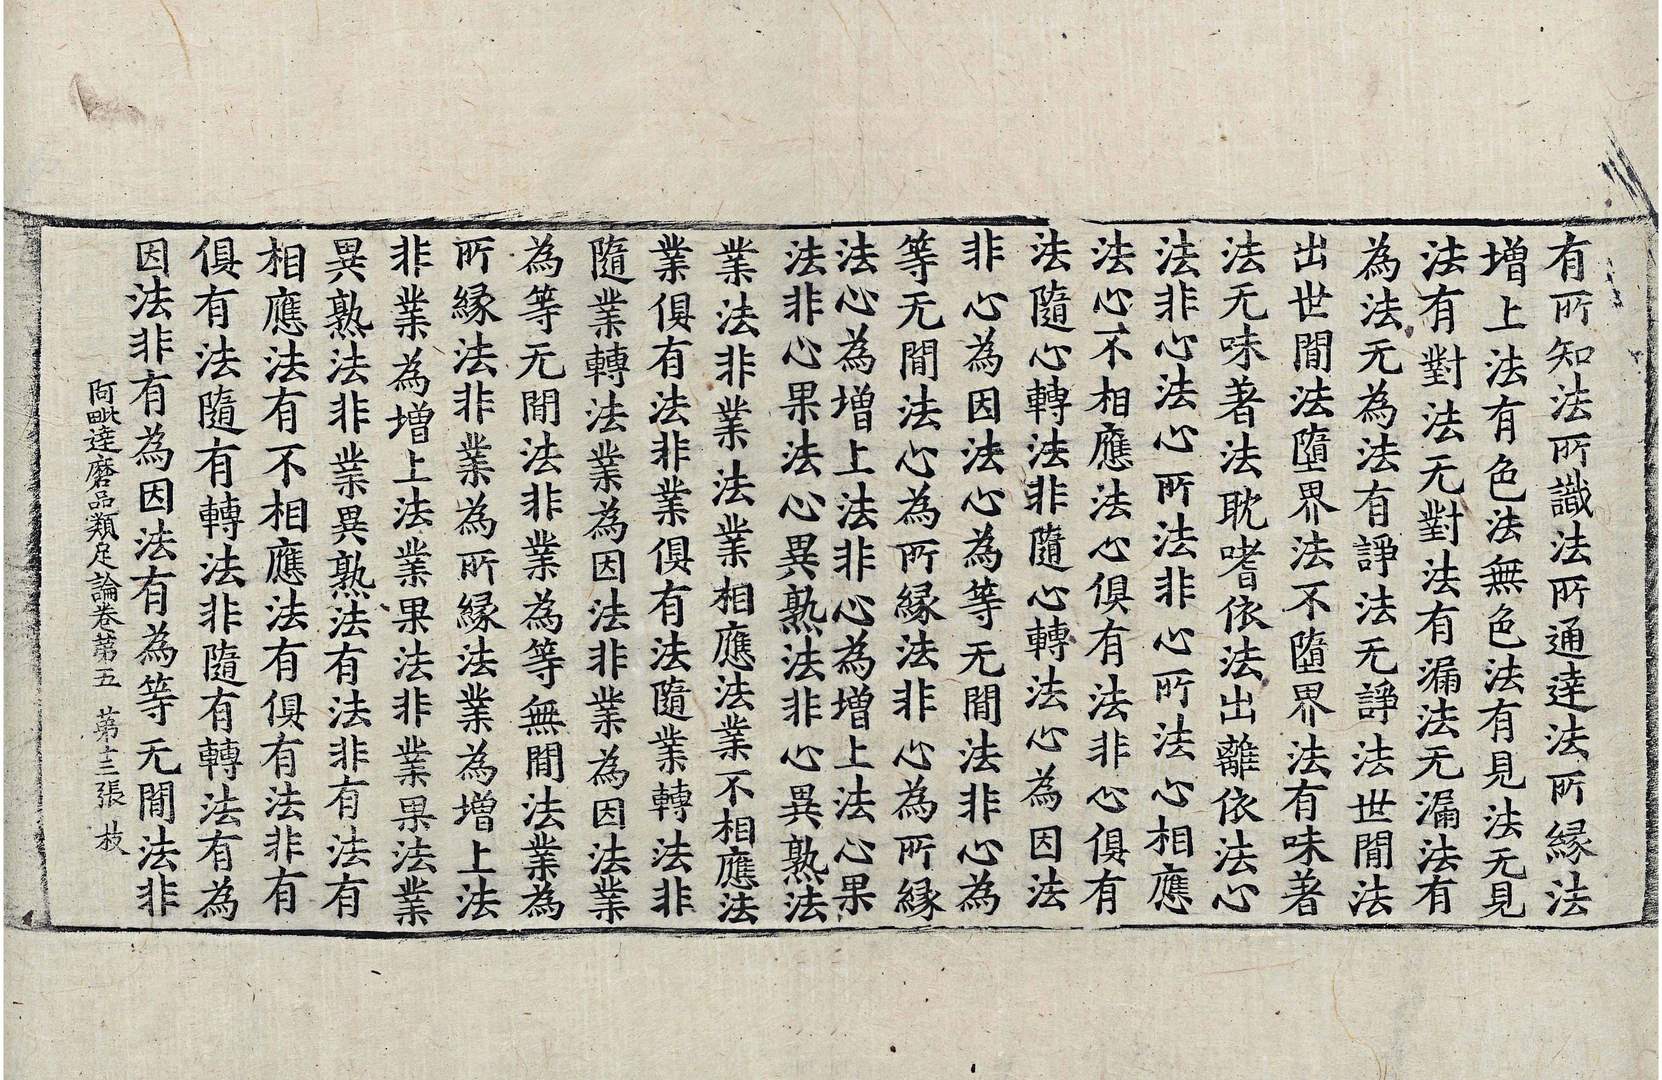 有所知法所識法所通達法所縁法
增上法有色法無色法有見法无見
法有對法无對法有漏法无漏法有
為法无為法有諍法无諍法世間法
出世間法墮界法不墮界法有味著
法无味著法耽嗜依法出離依法心
法非心法心所法非心所法心相應
法心不相應法心俱有法非心俱有
法隨心轉法非隨心轉法心為因法
非心為因法心為等无間法非心為
等无間法心為所縁法非心為所縁
法心為增上法非心為增上法心果
法非心果法心異熟法非心異熟法
業法非業法業相應法業不相應法
業俱有法非業俱有法隨業轉法非
隨業轉法業為因法非業為因法業
為等无間法非業為等無間法業為
所縁法非業為所縁法業為增上法
非業為增上法業果法非業果法業
異熟法非業異熟法有法非有法有
相應法有不相應法有俱有法非有
俱有法隨有轉法非隨有轉法有為
因法非有為因法有為等无間法非
阿毗達磨品類足論卷第五 第十三張 枝